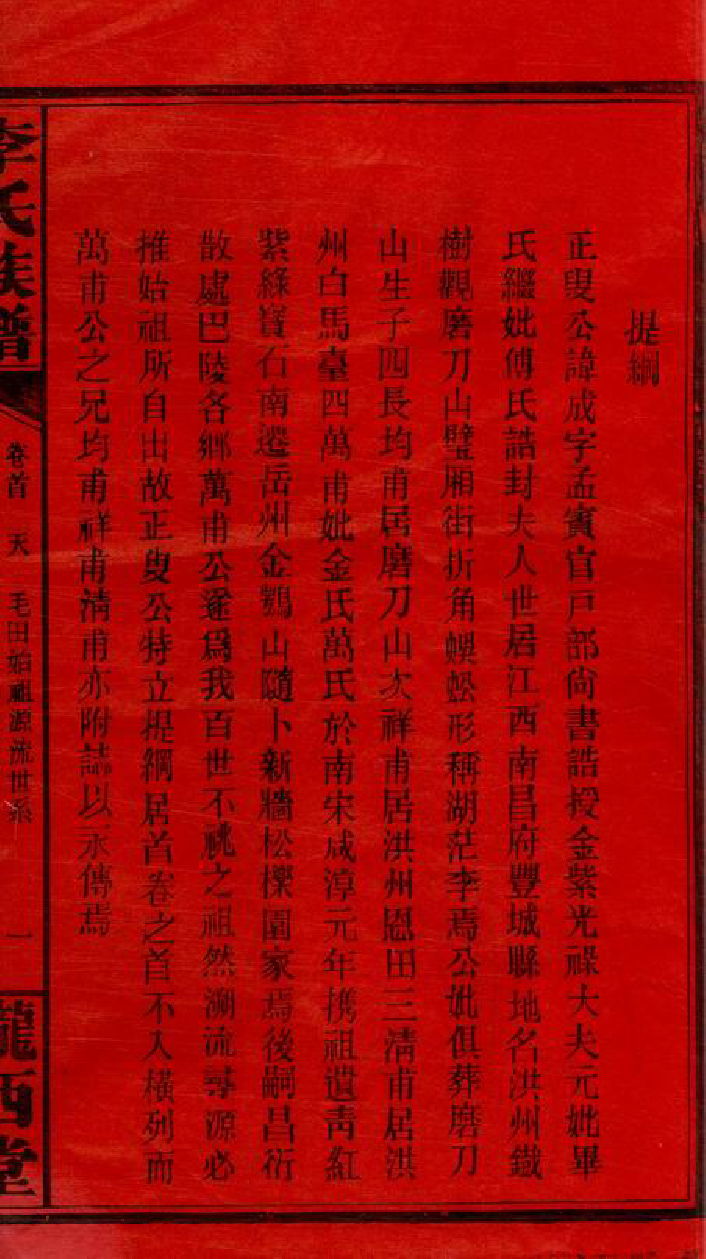 提綱
正叟公諱成字孟賓官戸部尙書誥授金紫光祿大夫元妣畢
氏繼妣傅氏誥封夫人世居江西南昌府豐城縣地名洪州鐵
樹觀磨刀山壁厢街折角蜈蚣形稱湖茫李焉公妣俱葬磨刀
山生子四長均甫居磨刀山次祥甫居洪州恩田三淸甫居洪
州白馬臺四萬甫妣金氏萬氏於南宋咸淳元年携祖遺靑紅
紫綠寶石南遷岳州金鶚山隨卜新牆松櫟園家焉後嗣昌衍
散處巴陵各鄉萬甫公遂爲我百世不祧之祖然溯流尋源必
推始祖所自出故正叟公特立提綱居首卷之首不入橫列而
萬甫公之兄均甫祥甫淸甫亦附誌以永傳焉
李氏族譜
卷首 天 毛田始祖源流世系 一
隴西堂